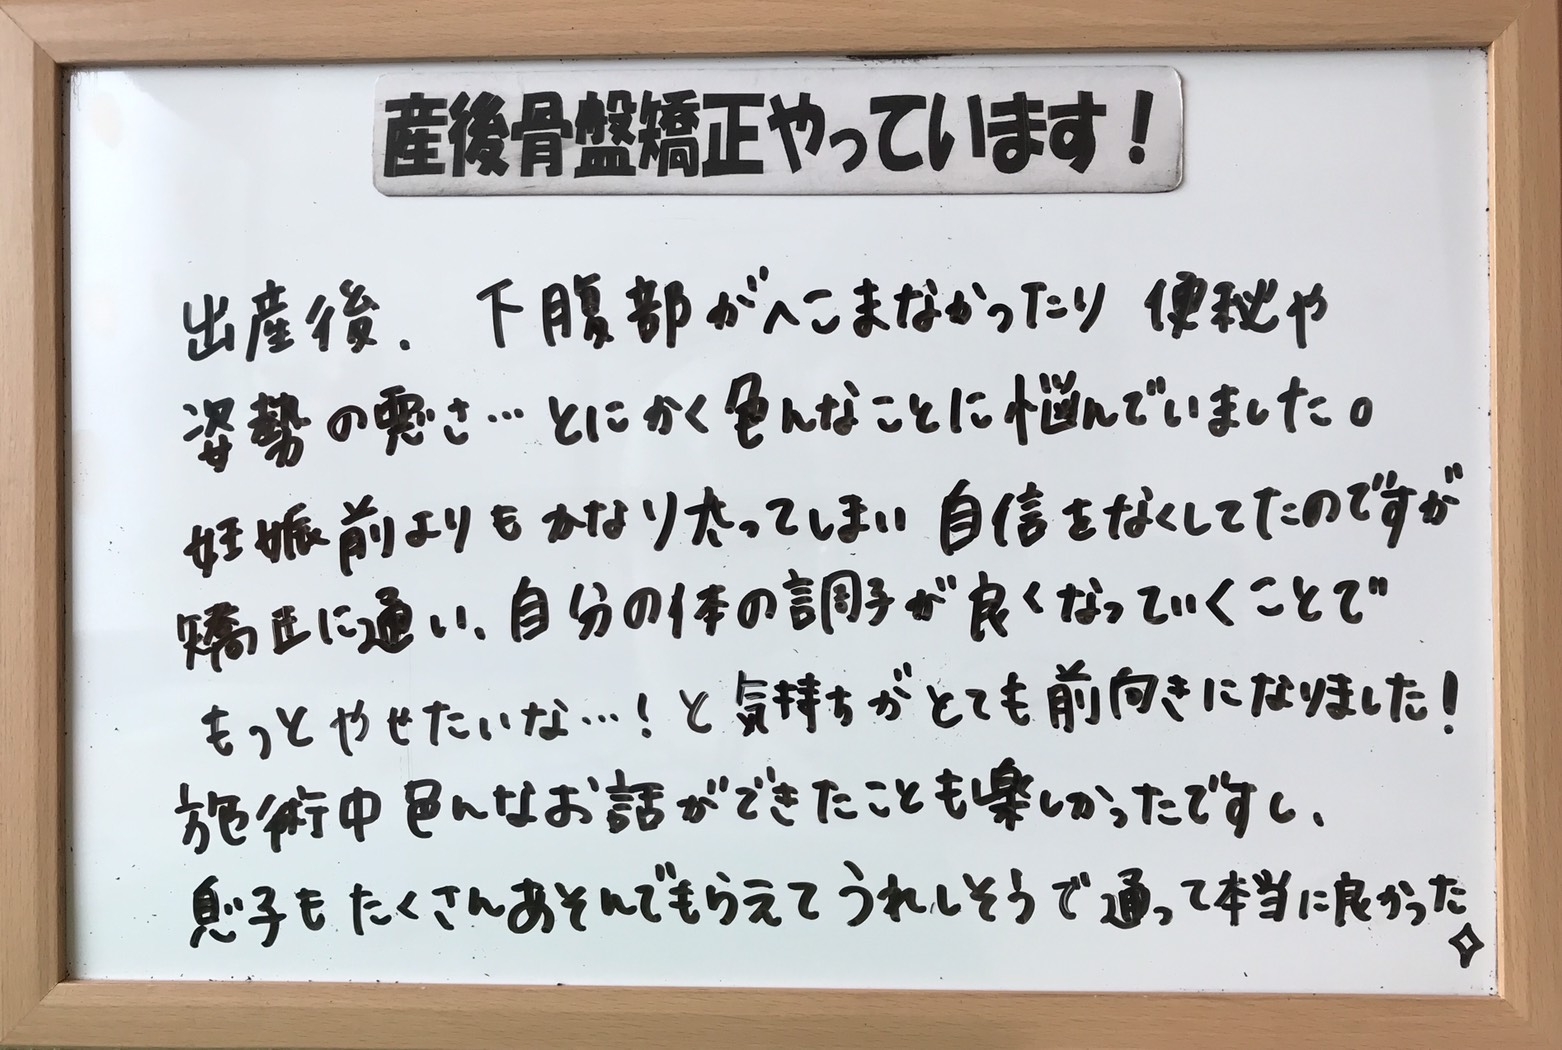 産後骨盤矯正やっています！
出産後、下腹部がへこまなかったり 便秘や
姿勢の悪さ…とにかく色んなことに悩んでいました。
妊娠前よりもかなり太ってしまい 自信をなくしてたのですが
矯正に通い、自分の体の調子が良くなっていくことで
もっとやせたいな…！と気持ちがとても前向きになりました！
施術中色んなお話ができたことも楽しかったですし、
息子もたくさんあそんでもらえてうれしそうで通って本当に良かった